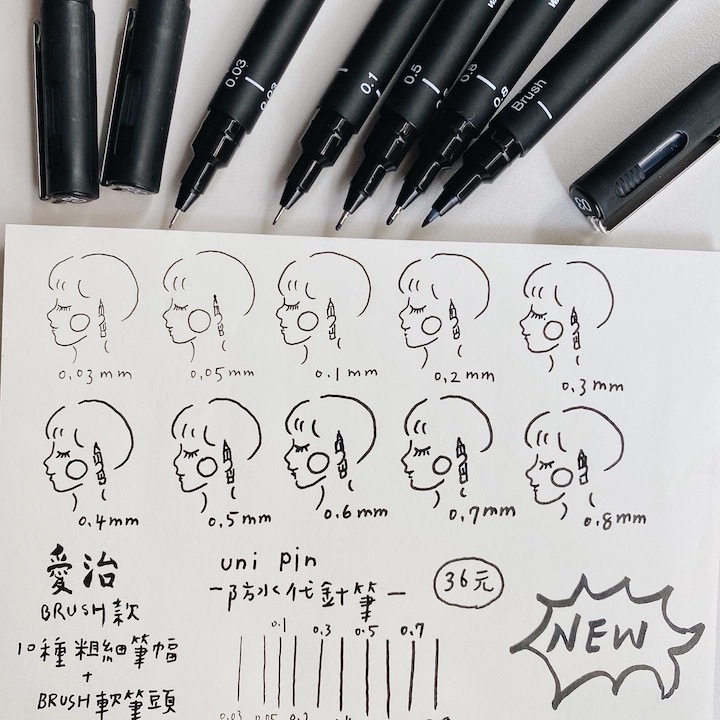 0.03
0.03
0.1
0.5
0.8
0.8
Brush
03
0.03mm
0.05mm
0.1mm
0.2mm
0.3mm
0.4mm
0.5mm
0.6mm
0.7mm
0.8mm
愛治
BRUSH款
10種粗細筆幅
+
BRUSH軟筆頭
uni pin
-防水代針筆-
36元
0.1 0.3 0.5 0.7
0.03 0.05 0.2
NEW